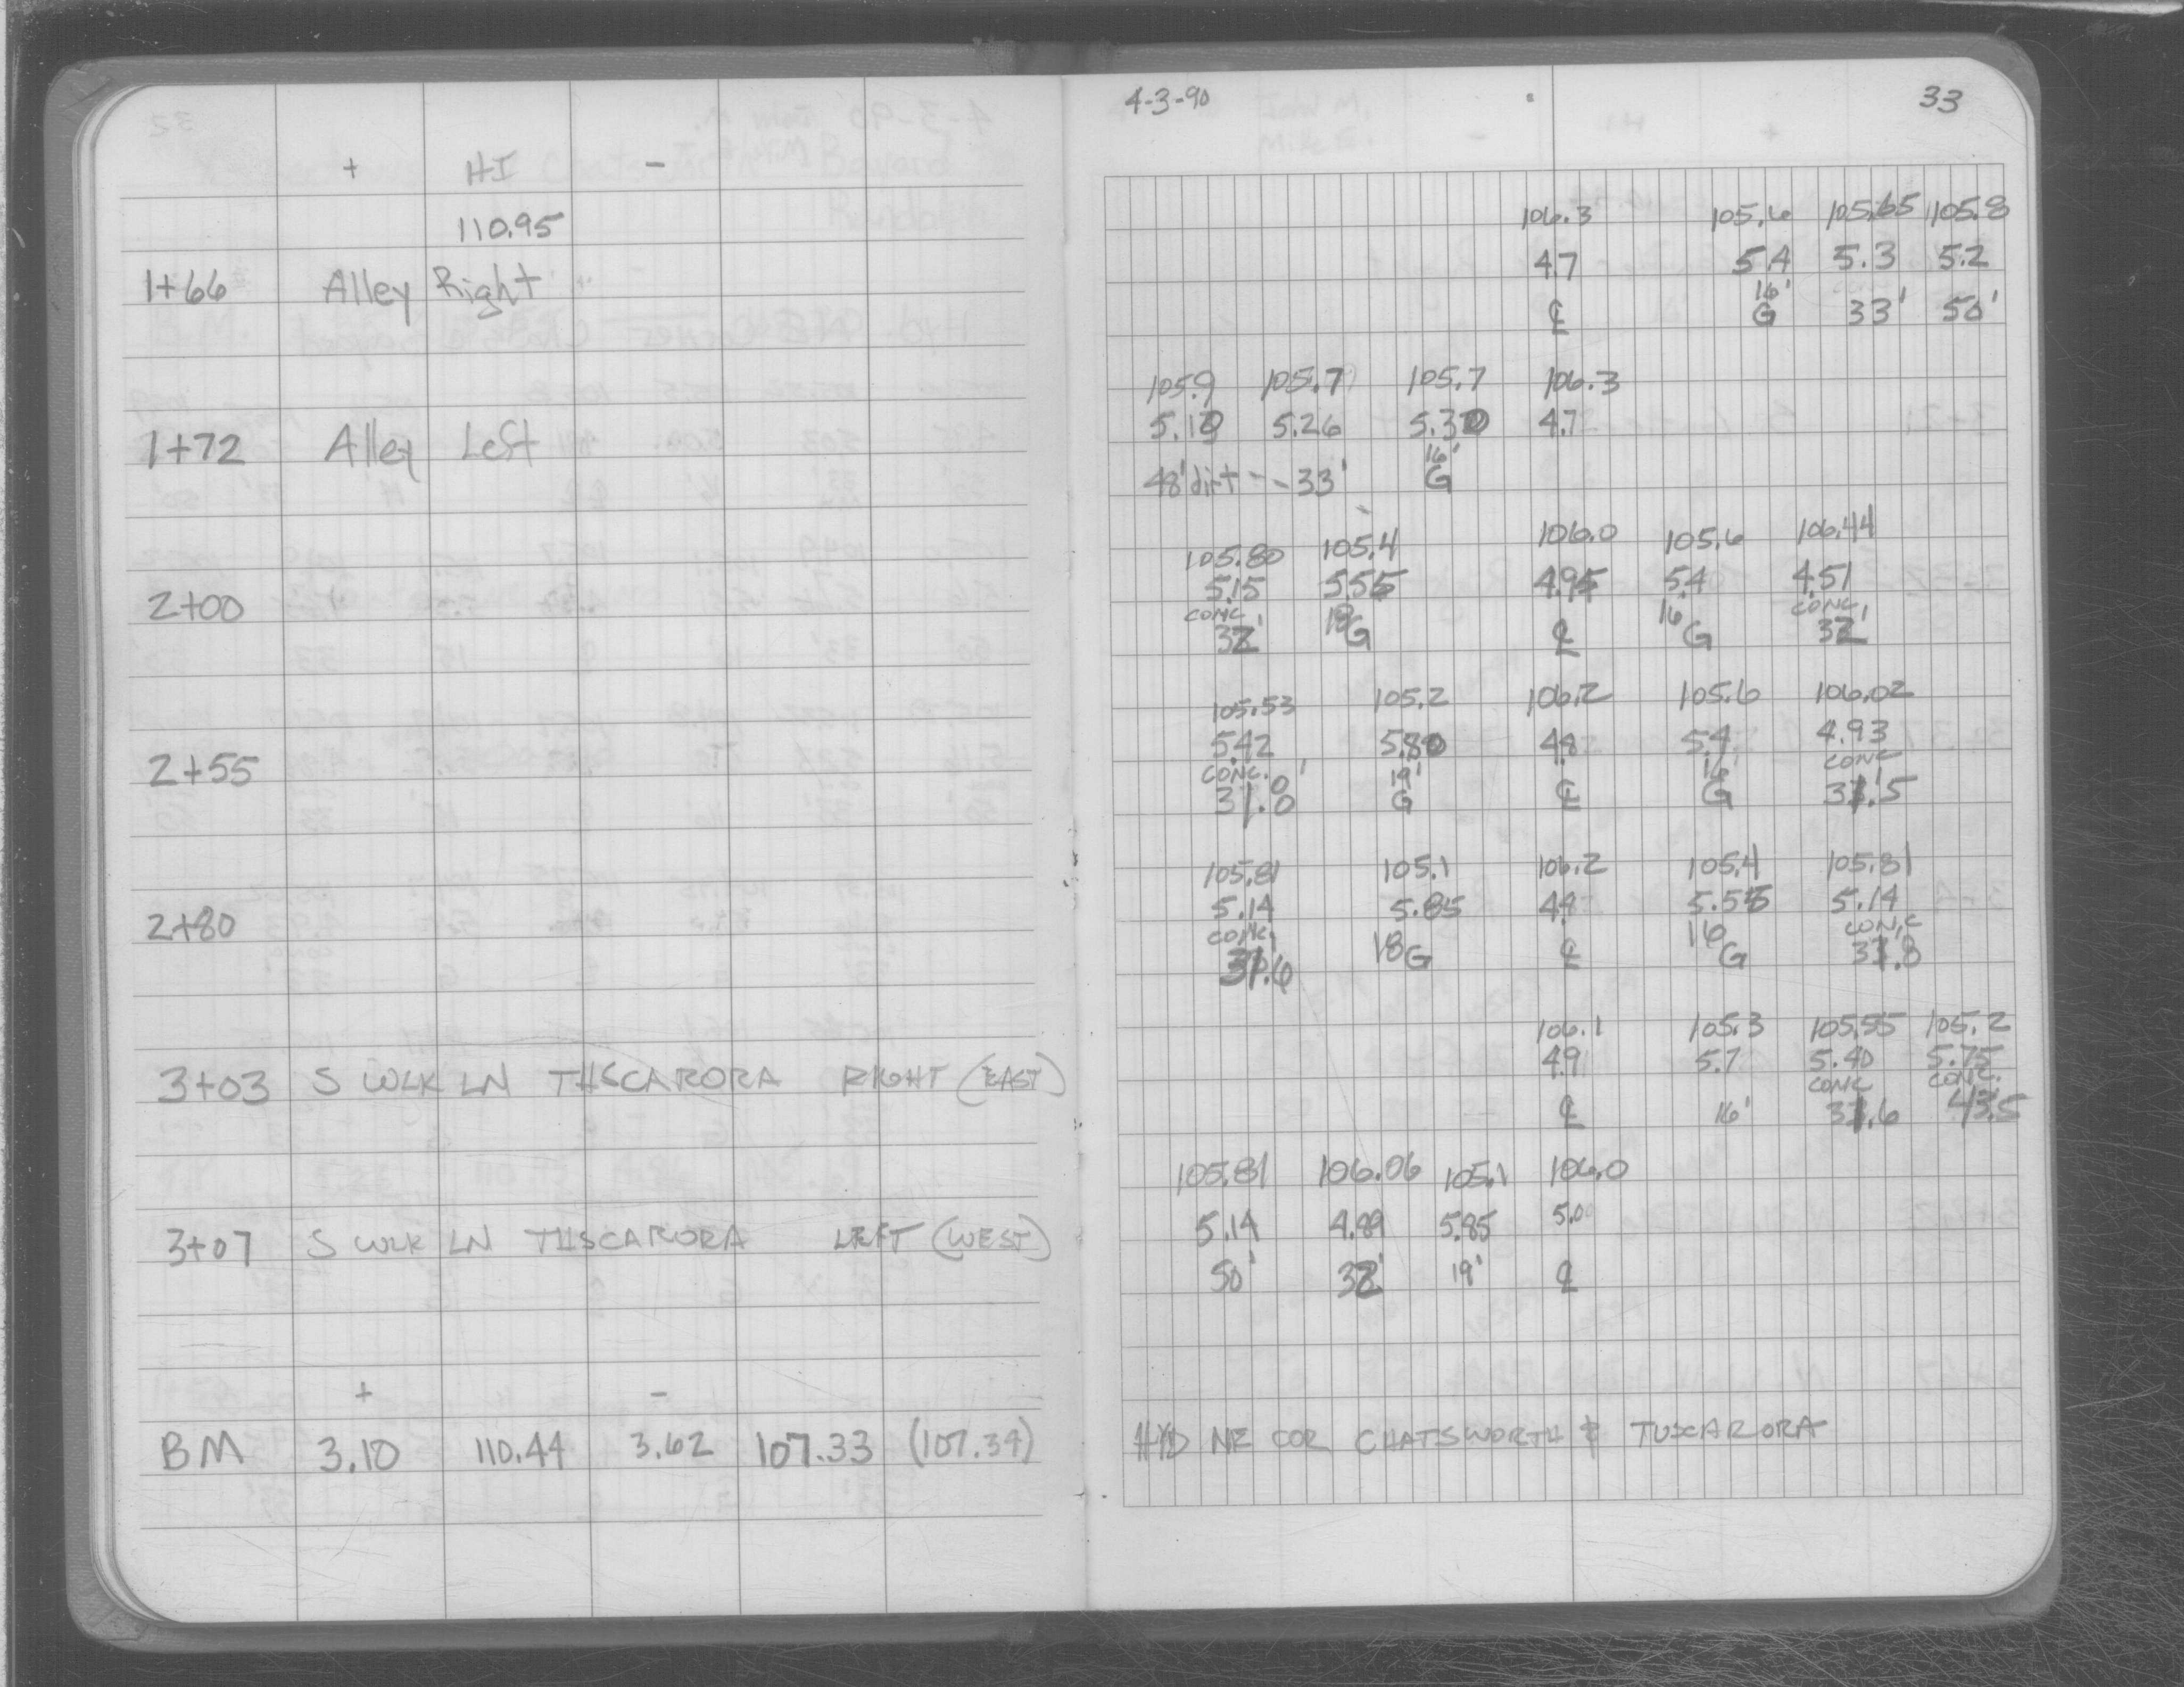 4-3-90 33
+ HI -
110.95
1+66 Alley Right
106.3 105.6 105.65 105.8
4.7 5.4 5.3 5.2
16'
℄ G 33' 50'
1+72 Alley Left
105.9 105.7 105.7 106.3
5.10 5.26 5.30 4.7
16'
48' dirt - - 33' G
2+00
105.80 105.4 106.0 105.6 106.44
5.15 5.55 4.95 5.4 4.51
CONC CONC
32' 18 G ℄ 16 G 32'
2+55
105.53 105.2 106.2 105.6 106.02
5.42 5.80 4.8 5.4 4.93
CONC. 19' 16' CONC
31.0' G ℄ G 31.5'
2+80
105.81 105.1 106.2 105.4 105.81
5.14 5.85 4.8 5.55 5.14
CONC CONC
31.6 18 G ℄ 16 G 31.8
3+03 S WLK LN TUSCARORA RIGHT (EAST)
106.1 105.3 105.55 105.2
4.9 5.7 5.40 5.75
CONC CONC.
℄ 16' 31.6 43.5
3+07 S WLK LN TUSCARORA LEFT (WEST)
105.81 106.06 105.1 106.0
5.14 4.89 5.85 5.0
50' 32' 19' ℄
+ -
BM 3.10 110.44 3.62 107.33 (107.34)
HYD NE COR CHATSWORTH & TUSCARORA